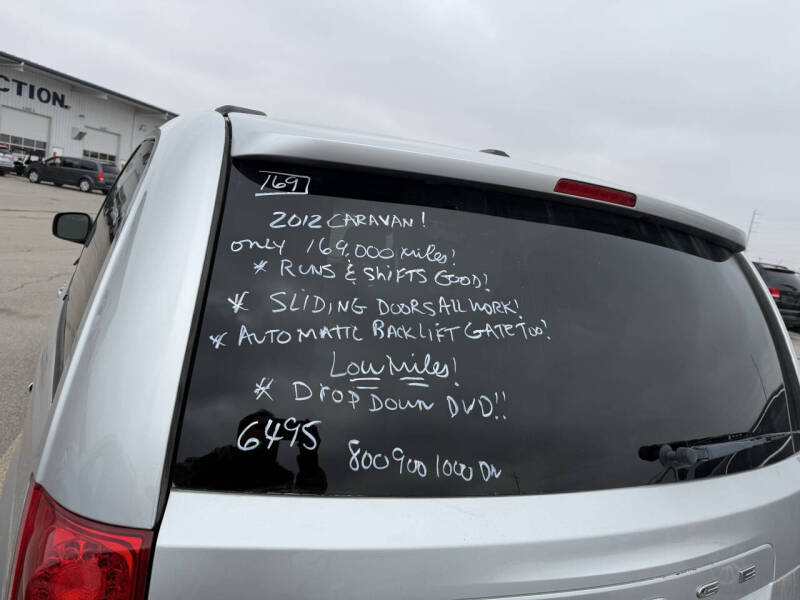 CTION.
169
2012 CARAVAN!
only 169,000 miles!
* RUNS & SHIFTS GOOD!
* SLIDING DOORS ALL WORK!
* AUTOMATIC BACK LIFT GATE TOO!
LOW MILES!
* DROP DOWN DVD!!
6495
800 900 1000 DN
GE